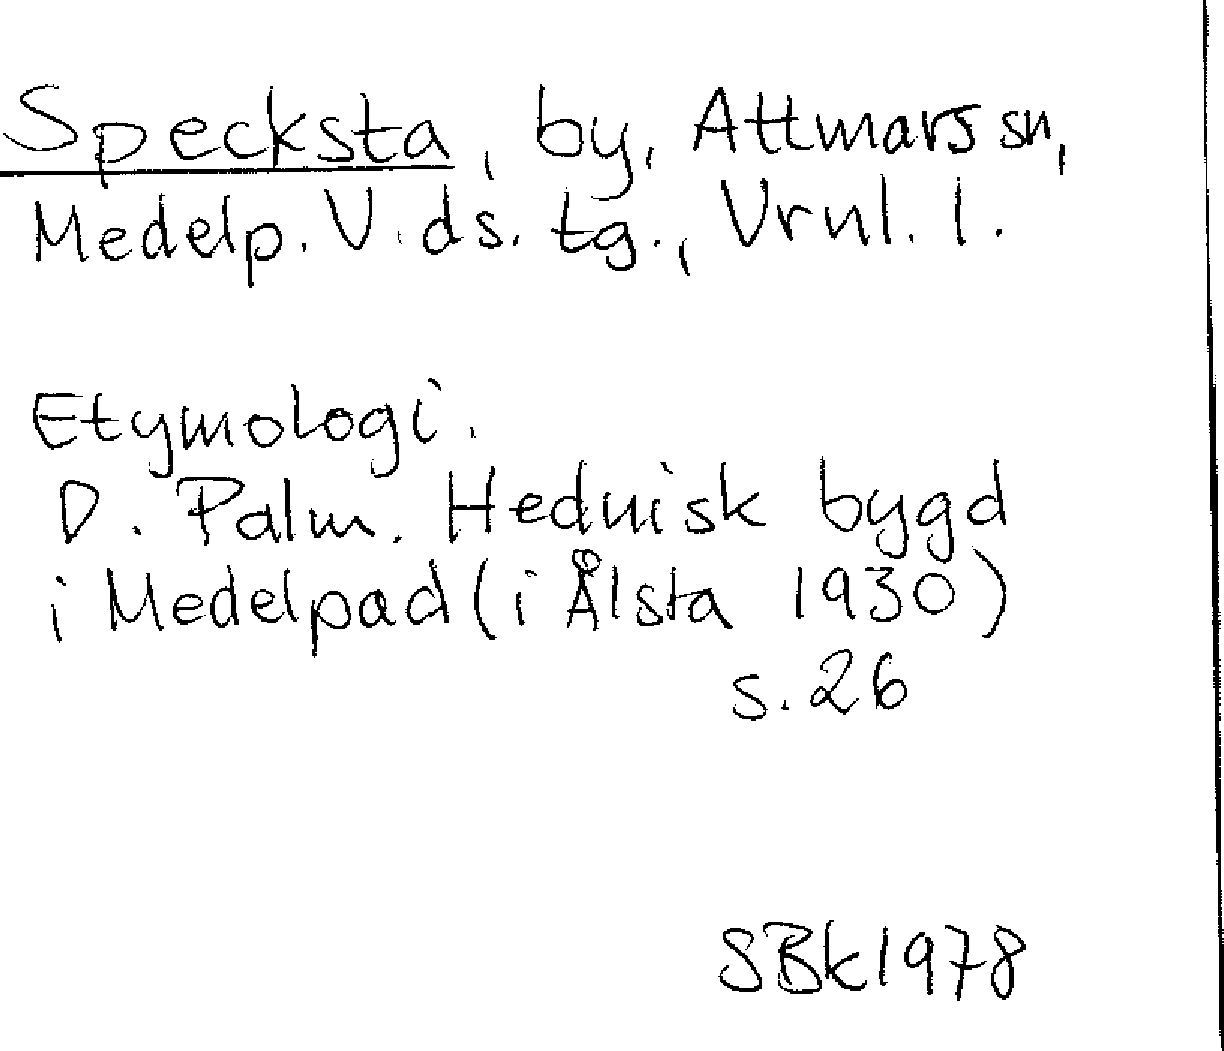 Specksta, by, Attmars sn,
Medelp. V. ds. tg., Vrnl. l.
Etymologi.
D. Palm. Hednisk bygd
i Medelpad (i Ålsta 1930)
s. 26
SBk 1978